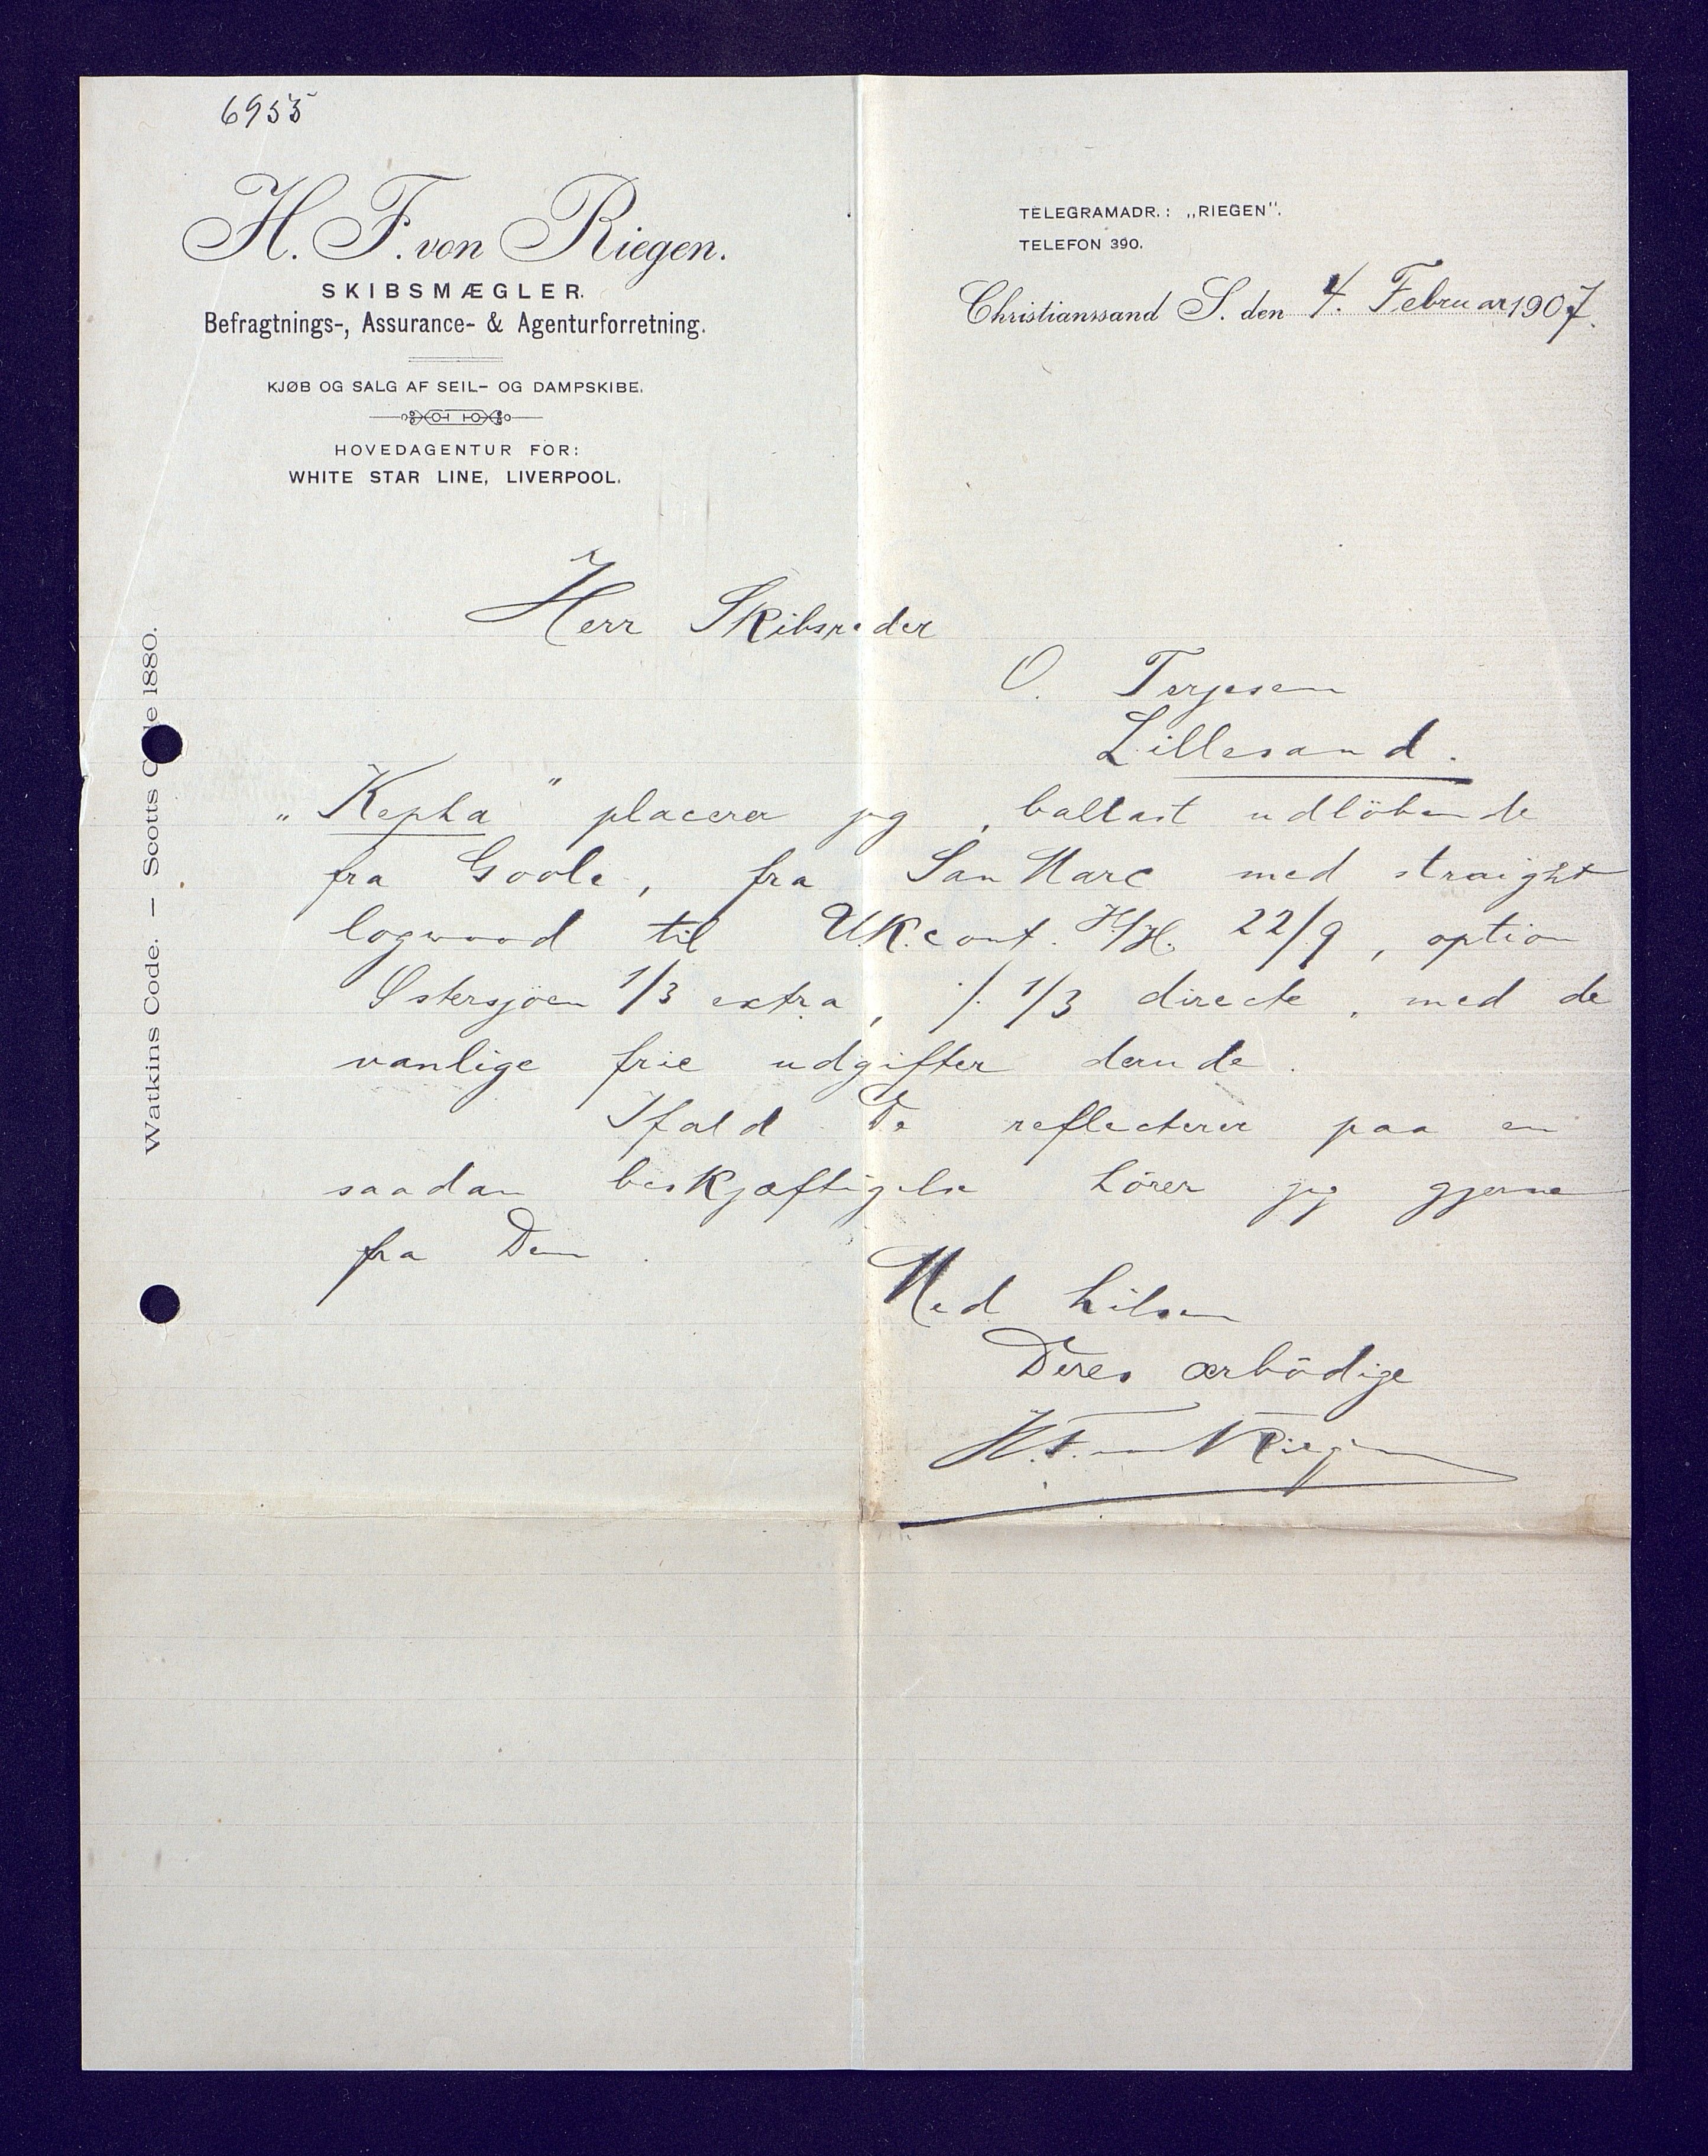 6955
H. F. von Riegen.
SKIBSMÆGLER.
Befragtnings-, Assurance- & Agenturforretning.
KJØB OG SALG AF SEIL- OG DAMPSKIBE.
HOVEDAGENTUR FOR:
WHITE STAR LINE, LIVERPOOL.
TELEGRAMADR.: „RIEGEN".
TELEFON 390.
Christianssand S. den 4. Februar 1907.
Watkins Code. — Scotts Code 1880.
Herr Skibsreder
O. Terjesen
Lillesand.
„Kepha" placerer jeg, ballast udlöbende
fra Goole, fra San Marc med straight
logwood til UK. cont. H/H. 22/9, option
Østersjöen 1/3 extra, ./. 1/3 directe, med de
vanlige frie udgifter derude.
Ifald De reflecterer paa en
saadan beskjæftigelse hører jeg gjerne
fra Dem.
Med hilsen
Deres ærbödige
H. F. von Riegen